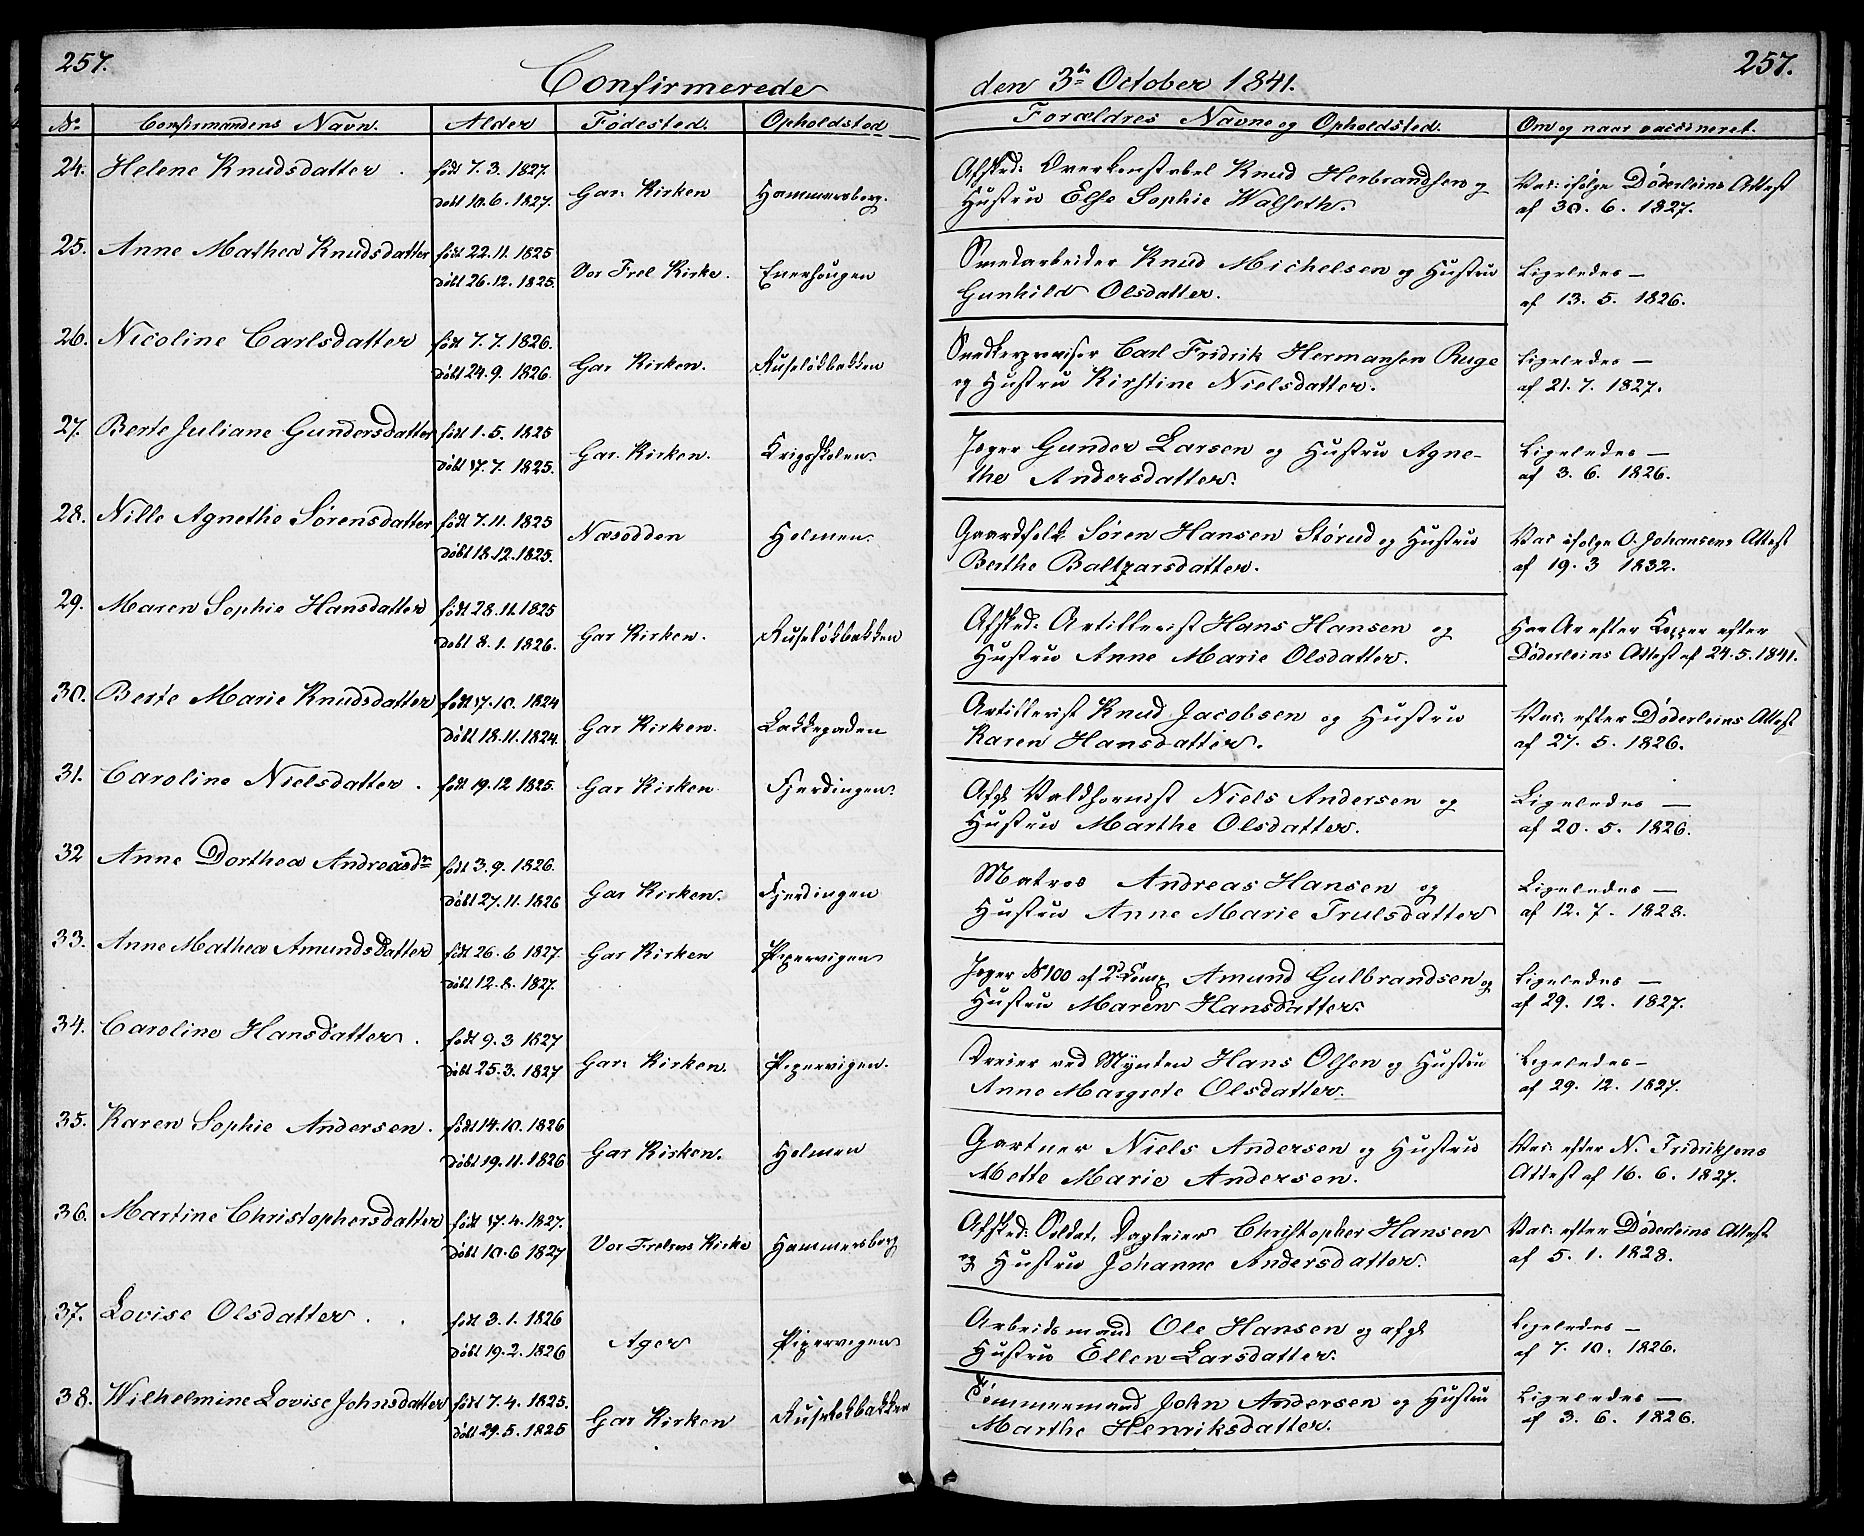 257.
257.
Confirmerede den 3die October 1841.
No Confirmandens Navn. Alder Fødested. Opholdsted Forældres Navne og Opholdsted. Om og naar vaccineret.
24. Helene Knudsdatter. født 7. 3. 1827. Afsked: Overkonstabel Knud Herbrandsen og
døbt 10. 6. 1827. Gar. Kirken Hammersborg. Hustru Else Sophie Walseth. Vac: ifølge Døderleins Attest
af 30. 6. 1827.
25. Anne Mathea Knudsdatter født 22. 11. 1825 Smedarbeider Knud Michelsen og Hustru
døbt 26. 12. 1825. Vor Frel Kirke. Enerhougen Gunhild Olsdatter. Ligeledes —
af 13. 5. 1826.
26. Nicoline Carlsdatter født 7. 7. 1826. Snedkersvend Carl Fridrik Hermansen Ruge
døbt 24. 9. 1826. Gar Kirken. Ruseløkbakken og Hustru Kirstine Nielsdatter. Ligeledes —
af 21. 7. 1827.
27. Berte Juliane Gundersdatter født 1. 5. 1825 Jæger Gunder Larsen og Hustru Agne-
døbt 17. 7. 1825. Gar. Kirken. Krigsskolen. the Andersdatter. Ligeledes —
af 3. 6. 1826.
28. Nille Agnethe Sørensdatter født 7. 11. 1825 Gaardfolk Søren Hansen Størud og Hustru
døbt 18. 12. 1825. Næsodden Holmen. Berthe Baltzarsdatter. Vac: ifølge O. Johansens Attest
af 19. 3 1832.
29. Maren Sophie Hansdatter født 28. 11. 1825 Afsked: Artillerist Hans Hansen og
døbt 8. 1. 1826. Gar Kirken. Ruseløkbakken Hustru Anne Marie Olsdatter. Har Ar efter Kopper efter
Døderleins Attest af 24. 5. 1841.
30. Berte Marie Knudsdatter født 17. 10. 1824 Artillerist Knud Jacobsen og Hustru
døbt 18. 11. 1824. Gar Kirken. Lakkegaden Karen Hansdatter. Vac: efter Døderleins Attest
af 27. 5. 1826.
31. Caroline Nielsdatter. født 19. 12 1825. Gar Kirken Fjerdingen. Afgl Valdhornist Niels Andersen og
Hustru Marthe Olsdatter. Ligeledes —
af 20. 5. 1826.
32 Anne Dorthea Andreasdtr født 3. 9. 1826. Matros Andreas Hansen og
døbt 27. 11. 1826 Gar Kirken. Fjerdingen Hustru Anne Marie Trulsdatter Ligeledes —
af 12. 7. 1828.
33. Anne Mathea Amundsdatter født 26. 6 1827. Gar Kirken Pipervigen Jæger No 100 af 2d Comp. Amund Gulbrandsen og
døbt 12. 8. 1827. Hustru Maren Hansdatter. Ligeledes —
af 29. 12. 1827.
34. Caroline Hansdatter. født 9. 3 1827 Dreier ved Mynten Hans Olsen og Hustru
døbt 25. 3. 1827 Gar. Kirken. Pipervigen. Anne Margrete Olsdatter. Ligeledes —
af 29. 12. 1827.
35. Karen Sophie Andersen. født 14. 10. 1826 Gartner Niels Andersen og Hustru
døbt 19. 11. 1826 Gar Kirken. Holmen Mette Marie Andersen. Vac: efter N. Fridriksens
Attest af 16. 6. 1827.
36. Martine Christophersdatter født 17. 4. 1827. Afsked: Soldat, Dagleier Christopher Hansen
døbt 10. 6 1827 Vor Frelsers Kirke Hammersborg og Hustru Johanne Andersdatter. Vac: efter Døderleins Attest
af 5. 1. 1828.
37. Lovise Olsdatter. født 3. 1. 1826 Arbeidsmand Ole Hansen og afgl
døbt 19. 2. 1826 Ager Pipervigen Hustru Ellen Larsdatter. Ligeledes —
af 7. 10. 1826.
38. Wilhelmine Lovise Johnsdatter født 7. 4. 1825. Tømmermand John Andersen og Hustru
døbt 29. 5. 1825 Gar Kirken Ruseløkbakken Marthe Henriksdatter. Ligeledes —
af 3. 6. 1826.